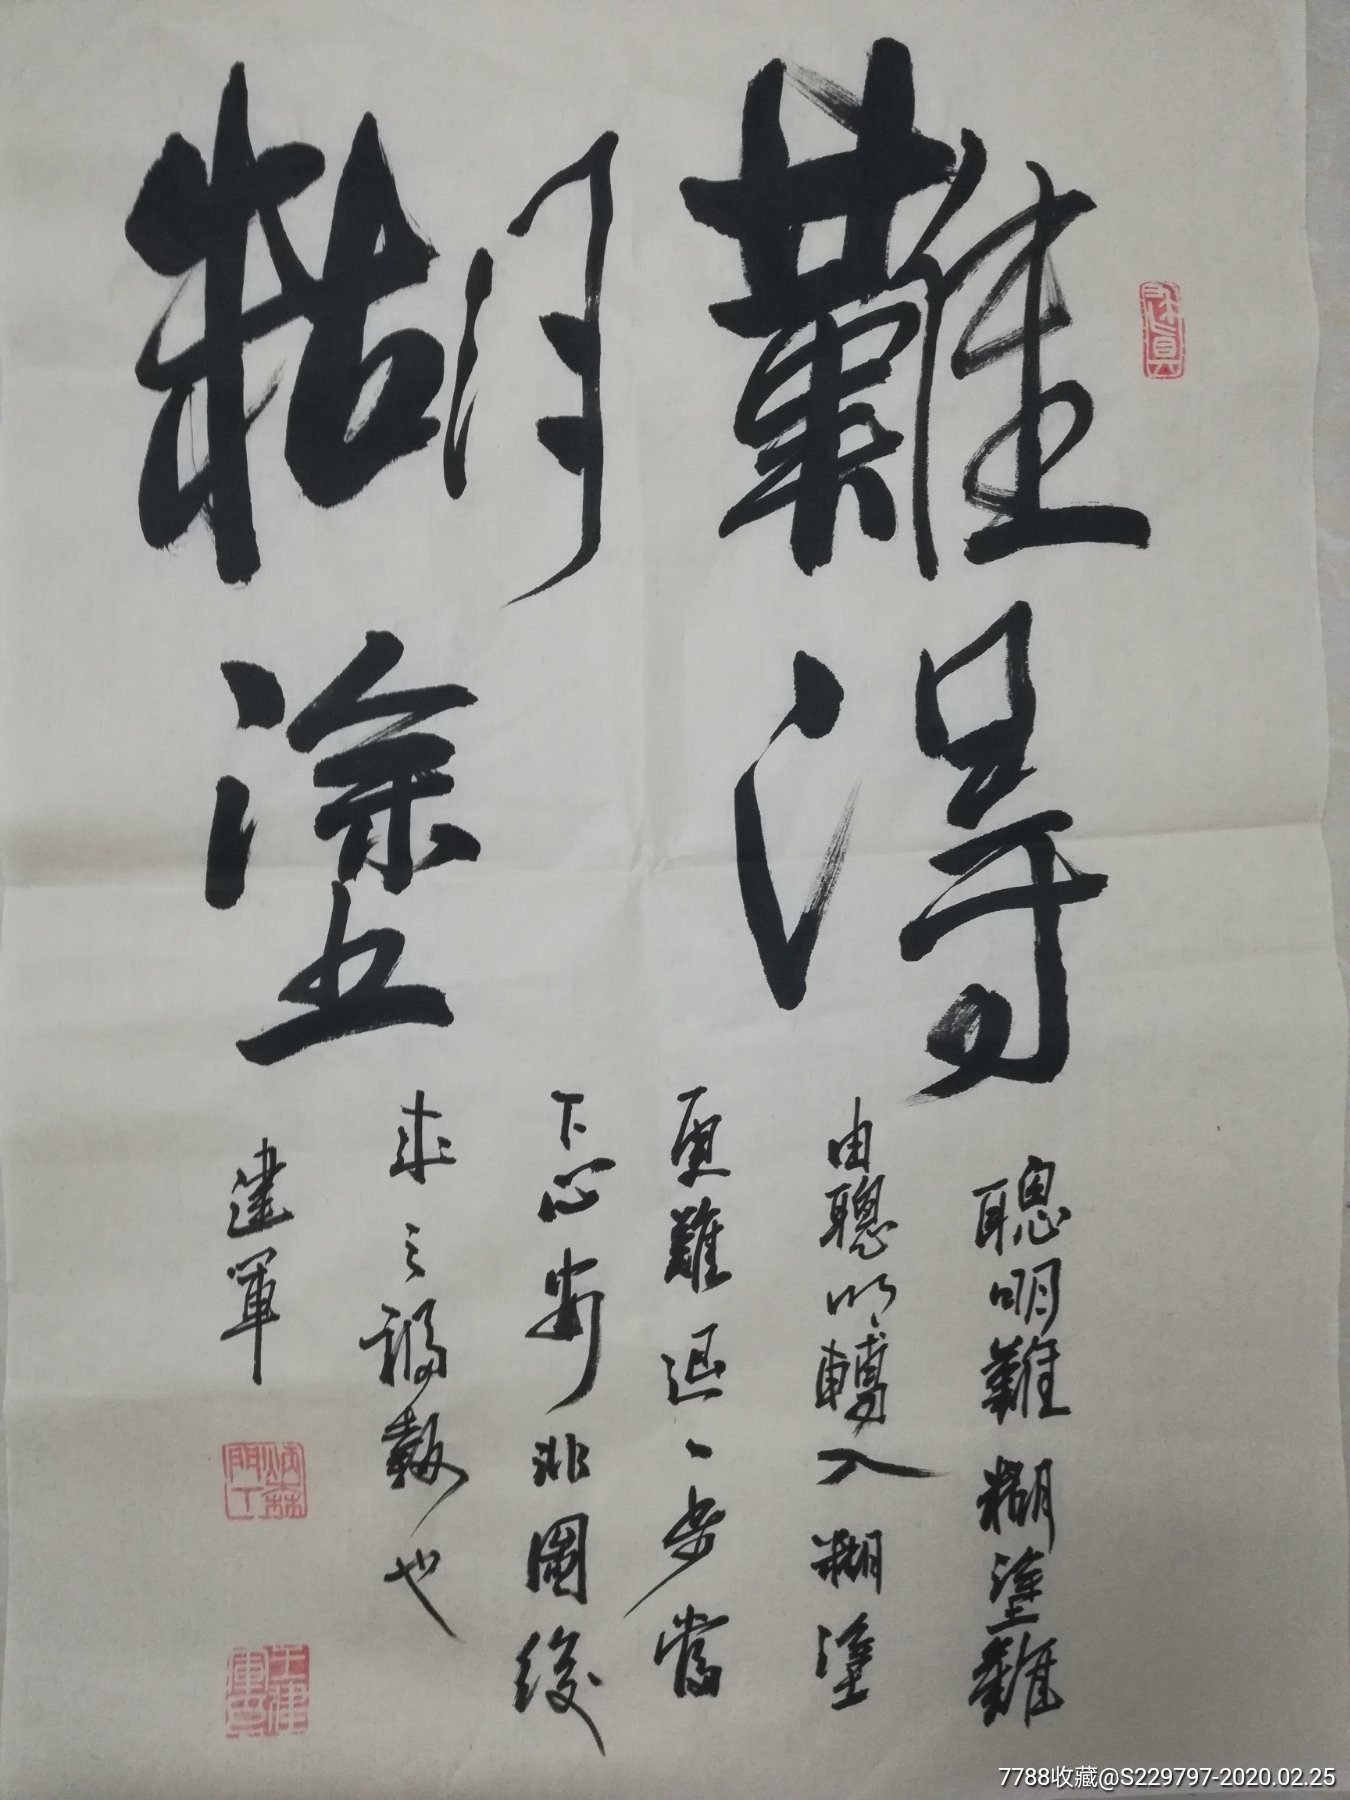 難得
糊塗
聰明難糊塗難
由聰明轉入糊塗
更難退一步當
下心安非圖後
来之福報也
建軍
王建軍印
7788收藏@S229797-2020.02.25